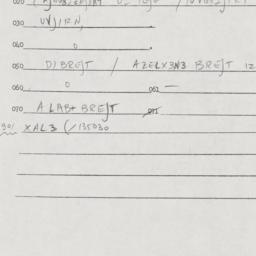 030 UVJ/RN,
040 0 .
050 D/BREJT / AZELX3N3 BREJT 1Z
060 0 062 —
070 A LAB+ BREJT 071
901 XAL3 (/135030